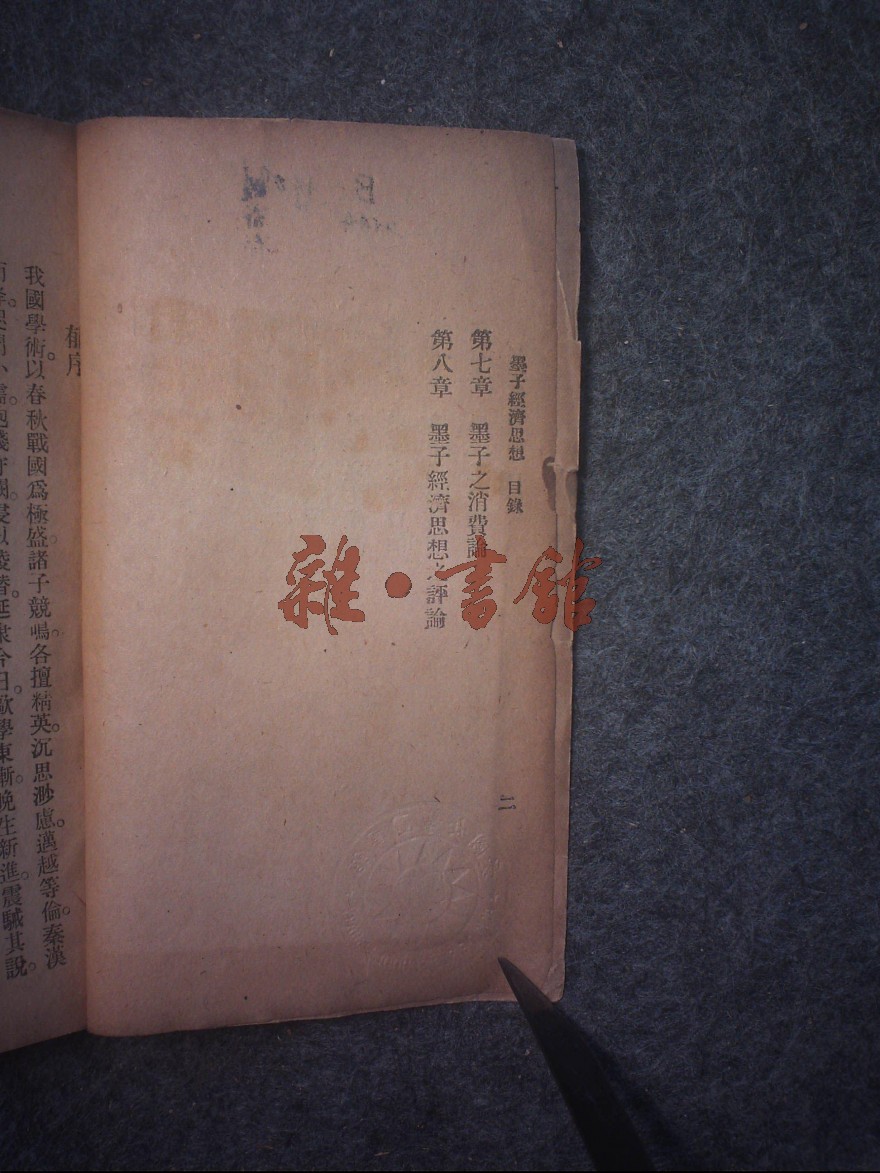 墨子經濟思想 目錄
第七章 墨子之消費論
第八章 墨子經濟思想之評論
二
雜·書館
序
我國學術。以春秋戰國爲極盛。諸子競鳴。各擅精英。沉思渺慮。邁越等倫。秦漢
今日歐學東漸。晚生新進。震駴其說。